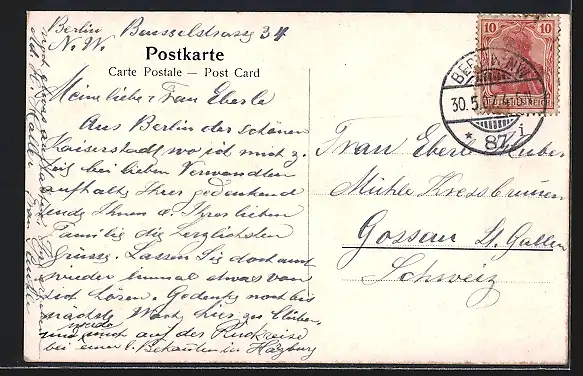 Berlin Beusselstrasse 34
N.W.
Postkarte
Carte Postale — Post Card
Meine liebe Frau Eberle
Aus Berlin der schönen
Kaiserstadt wo ich mich z.
Zeit bei lieben Verwandten
aufhalte Ihrer gedenkend
sende Ihnen u. Ihrer lieben
Familie die herzlichsten
Grüsse. Lassen Sie doch auch
wieder einmal etwas von
sich hören. Gedenke noch bis
nächste Woche hier zu bleiben
werde
und mich auf der Rückreise
bei einer l. Bekannten in
10 10
DEUTSCHES REICH
BERLIN NW
30.5
* 87 i
Frau Eberle Huber
Mühle Kressbrunnen
Gossau St. Gallen
Schweiz